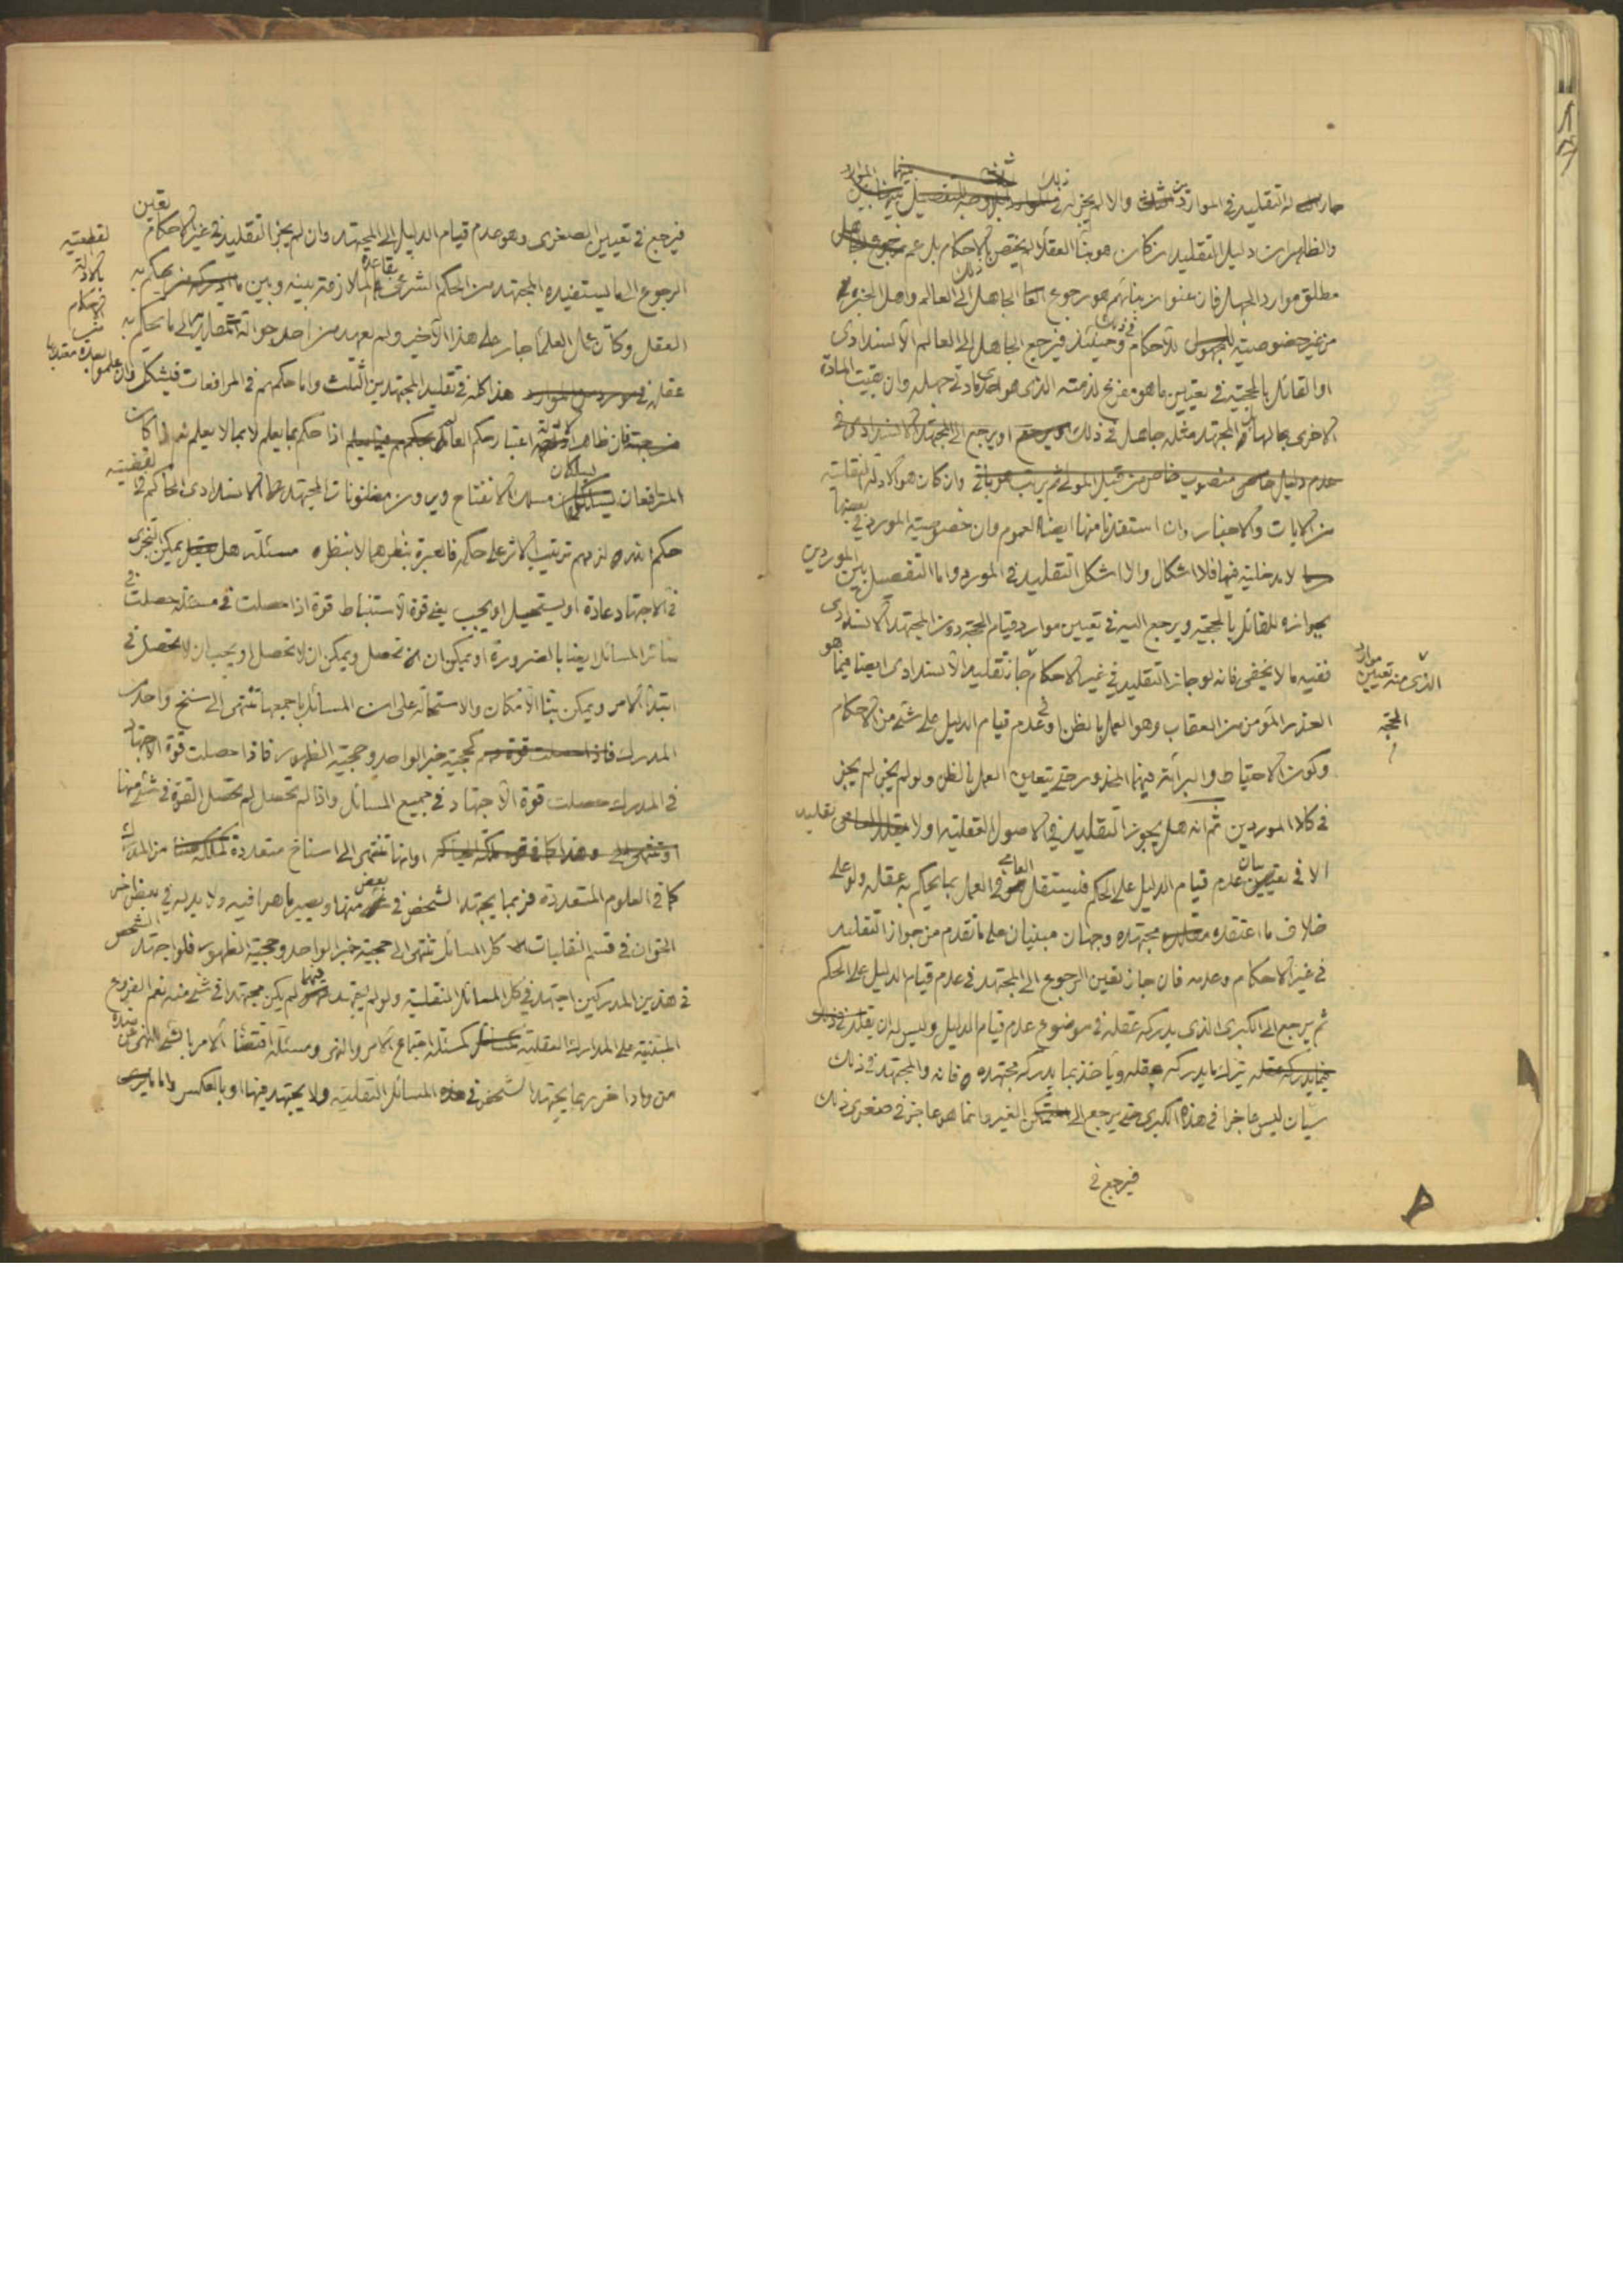 جاز له التقليد في الموارد الثلث والا لم يجز له في ذلك
والظاهر ان دليل التقليد ان كان هو بناء العقلاء لم يختص بالاحكام بل عم
مطلق موارد الجهل فان عنوان بنائهم هو رجوع الجاهل الى العالم واهل الخبرة
من غير خصوصية للاحكام في ذلك وحينئذ فيرجع الجاهل الى العالم الانسدادي
او القائل بالحجية في تعيين ما هو مفرغ لذمته الذي هو احدى مادتي جهله وان بقيت المادة
الاخرى بحالها المجتهد مثله جاهل في ذلك او يرجع الى المجتهد الانسدادي في
وان كان هو الادلة النقلية
من الايات والاخبار وان استفدنا منها ايضا العموم وان خصوصية المورد في بعضها
لا مدخلية فيها فلا اشكال والا اشكل التقليد في المورد واما التفصيل بين الموردين
بجوازه للقائل بالحجية ويرجع اليه في تعيين موارد قيام الحجة دون المجتهد الانسدادي
ففيه ما لا يخفى فانه لو جاز التقليد في غير الاحكام جاز تقليد الانسدادي ايضا فيما هو
العذر المؤمن من العقاب وهو العمل بالظن او في عدم قيام الدليل على شيء من الاحكام
وكون الاحتياط والبراءة فيهما المحذور حتى يتعين العمل بالظن ولو لم يجز لم يجز
في كلا الموردين ثم انه هل يجوز التقليد في الاصول العقلية او لا تقليد
الا في بيان عدم قيام الدليل على الحكم فيستقل العامي في العمل بما يحكم به عقله ولو على
خلاف ما اعتقده مجتهده وجهان مبنيان على ما تقدم من جواز التقليد
في غير الاحكام وعدمه فان جاز تعين الرجوع الى المجتهد في عدم قيام الدليل على الحكم
ثم يرجع الى الكبرى الذي يدركه عقله في موضوع عدم قيام الدليل وليس له ان يقلد في ذلك
يترك ما يدركه عقله ويأخذ بما يدركه مجتهده فانه والمجتهد في ذلك
سيان ليس عاجزا في هذه الكبرى حتى يرجع الى الغير وانما هو عاجز في صغرى ذلك
فيرجع في
الذي منه تعيين موارد
الحجة
فيرجع في تعيين الصغرى وهو عدم قيام الدليل الى المجتهد وان لم يجز التقليد في غير الاحكام تعين
الرجوع الى ما يستفيده المجتهد من الحكم الشرعي بقاعدة الملازمة بينه وبين ما يحكم به
العقل وكان عمل العلماء جار على هذا الاخير ولم يعهد من احد حوالة مقلديه الى ما يحكم به
عقله هذا كله في تقليد المجتهدين الثلث واما حكمهم في المرافعات فيشكل
فان ظاهر الادلة اعتبار حكم العالم اذا حكم بما يعلم لا بما لا يعلم نعم اذا كان
المترافعان يسلكان مسلك الانفتاح ويرون مظنونات المجتهد الانسدادي الحاكم في
حكم الله لزمهم ترتيب الاثر على حكمه فالعبرة بنظرهما لا بنظره مسئلة هل يمكن التجزي
في الاجتهاد عادة او يستحيل او يجب يعني قوة الاستنباط قوة اذا حصلت في مسئلة حصلت في
سائر المسائل ايضا بالضرورة او يمكن ان تحصل ويمكن ان لا تحصل او يجب ان لا تحصل في
ابتداء الامر ويمكن بناء الامكان والاستحالة على ان المسائل باجمعها تنتهي الى سنخ واحد من
المدرك كحجية خبر الواحد وحجية الظهور فاذا حصلت قوة الاجتهاد
في المدرك حصلت قوة الاجتهاد في جميع المسائل واذا لم تحصل لم تحصل القوة في شيء منها
او انها تنتهي الى اسناخ متعددة من المدرك
كما في العلوم المتعددة فربما يجتهد الشخص في بعض منها ويصير ماهرا فيه ولا يد له في بعض اخر
الحق ان في قسم النقليات كل المسائل تنتهي الى حجية خبر الواحد وحجية الظهور فلو اجتهد الشخص
في هذين المدركين اجتهد في كل المسائل النقلية ولو لم يجتهد فيهما لم يكن مجتهدا في شيء منه نعم الفروع
المبتنية على المدارك العقلية كمسئلة اجتماع الامر والنهي ومسئلة اقتضاء الامر بالشيء للنهي عن ضده
من واد اخر ربما يجتهد الشخص في المسائل النقلية ولا يجتهد فيها او بالعكس